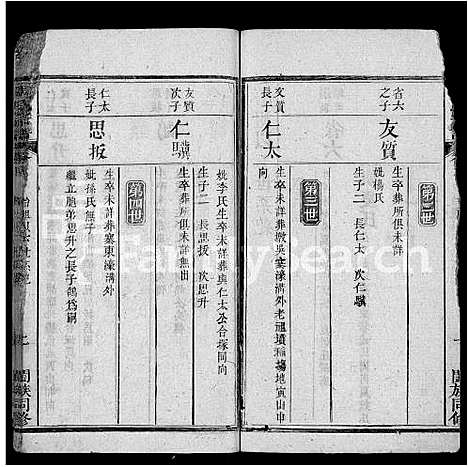 第二世
省六之子
友質
生卒葬所俱未詳
妣楊氏
生子二 長仁太 次仁驥
第三世
友質長子
仁太
生卒未詳葬敝吳家濠溝外老祖墳稲塲地寅山申
向
妣李氏生卒未詳葬與仁太公合塚同向
生子二 長思扳 次思升
友質次子
仁驥
生卒葬所俱未詳無出
第四世
仁太長子
思扳
生卒未詳葬東濠溝外
妣孫氏無子
繼立胞弟思升之長子鶴為嗣
闔族同修
闔族同修
FamilySearch